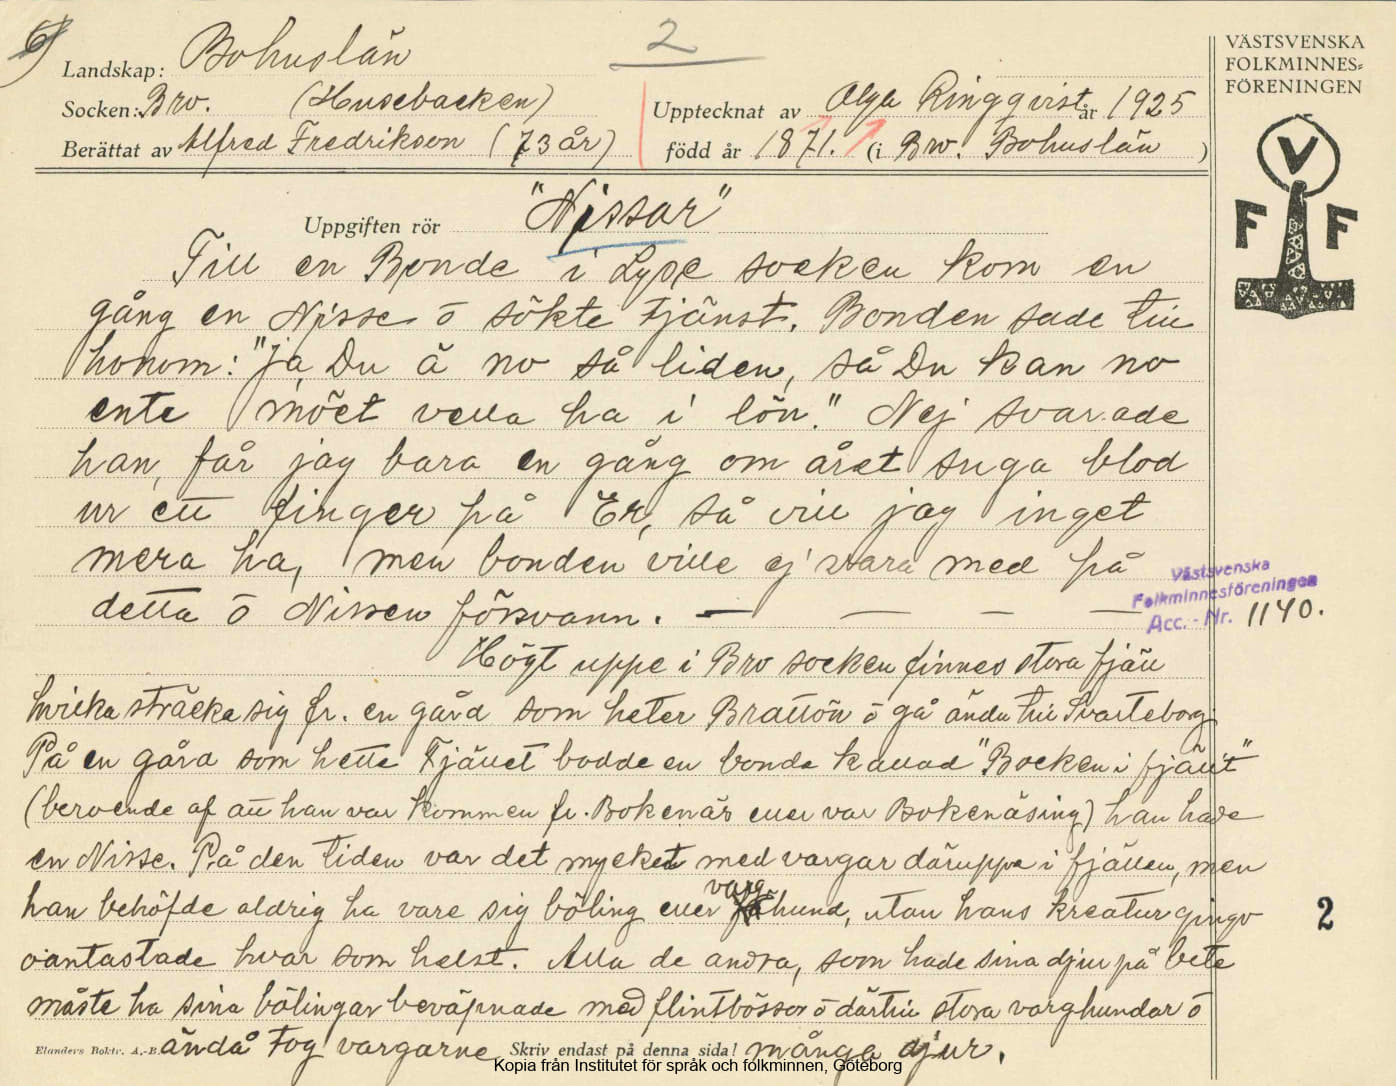 6)
2
Landskap: Bohuslän
Socken: Bro. (Husebacken)
Berättat av Alfred Fredrikson (73 år)
Upptecknat av Olga Ringqvist år 1925
född år 1871. (i Bro. Bohuslän )
VÄSTSVENSKA
FOLKMINNES=
FÖRENINGEN
V
F F
Uppgiften rör "Nissar"
Till en Bonde i Lyse socken kom en
gång en Nisse ö sökte tjänst. Bonden sade till
honom: "Ja, Du ä no så liden, så Du kan no
ente möet vella ha i lön." Nej svarade
han, får jag bara en gång om året suga blod
ur ett finger på Er, så vill jag inget
mera ha, men bonden ville ej vara med på
detta ö Nissen försvann. — — — —
Västsvenska
Folkminnesföreningen
Acc. - Nr. 1140.
Högt uppe i Bro socken finnes stora fjäll
hvilka sträcka sig fr. en gård som heter Brattön ö gå ända till Svarteborg.
På en gård som hette Fjället bodde en bonde kallad "Bocken i fjällt"
(beroende af att han var kommen fr. Bokenäs eller var Bokenäsing) han hade
en Nisse. På den tiden var det mycket med vargar däruppe i fjällen, men
han behöfde aldrig ha vare sig böling eller varghund, utan hans kreatur gingo
oantastade hvar som helst. Alla de andra, som hade sina djur på bete
måste ha sina bölingar beväpnade med flintbössor ö därtill stora varghundar ö
ändå tog vargarne många djur.
2
Elanders Boktr. A.-B.
Skriv endast på denna sida!
Kopia från Institutet för språk och folkminnen, Göteborg